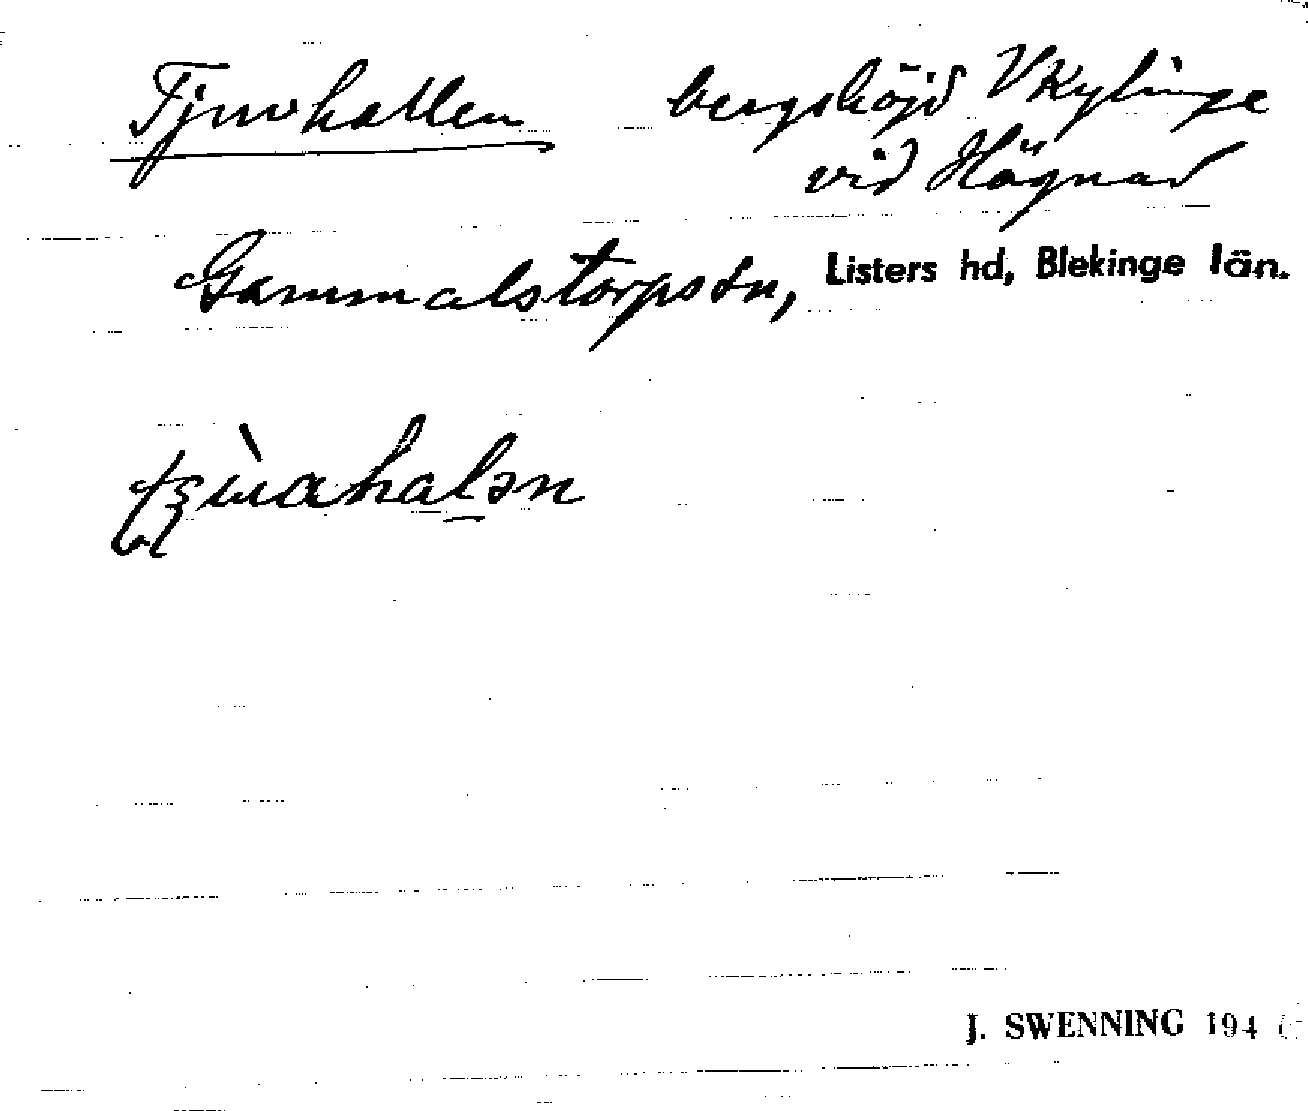 Tjuvhallen bergshöjd V Kylinge
vid Högnad
Gammalstorps sn, Listers hd, Blekinge län.
J. SWENNING 194